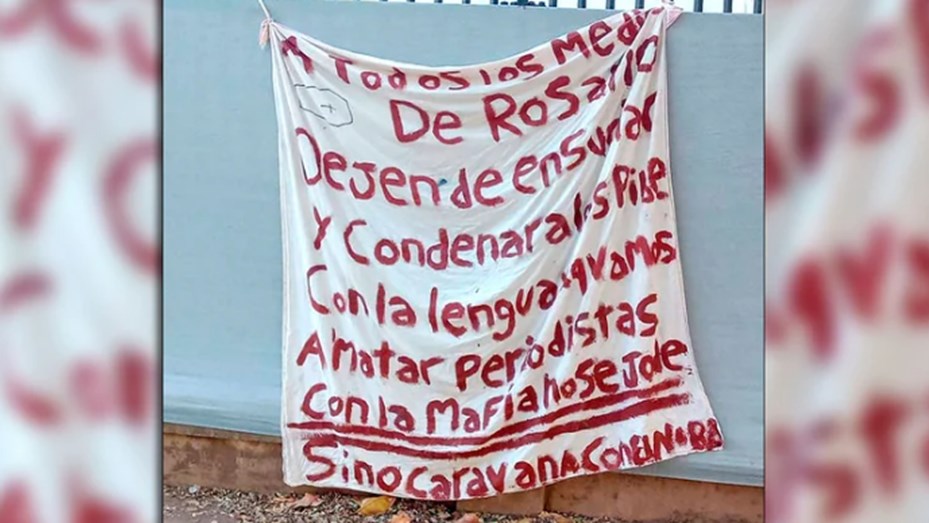 A Todos los Medio
De Rosario
Dejen de ensuciar
Y Condenar a los Pibe
Con la lengua
A Matar periodistas
Con la Mafia no Se Jode
Si no Caravana